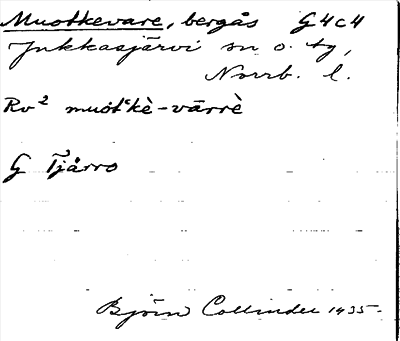 Muotkevare, bergås G4c4
Jukkasjärvi sn o. tg,
Norrb. l.
Rv² muot͑kè-vārrè
G Tjårro
Björn Collinder 1935.